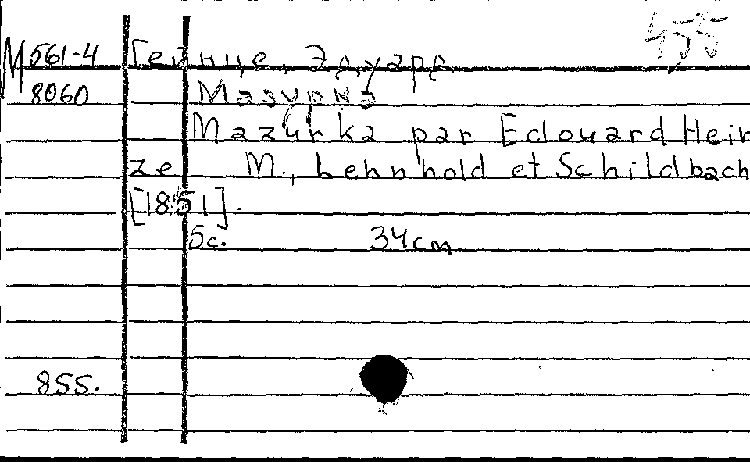 455
М 561-4 Гейнце, Эдуард.
8060 Мазурка
Mazurka par Edouard Hein
ze M., Lehnhold et Schildbach
[1851].
5с. 34cm
855.